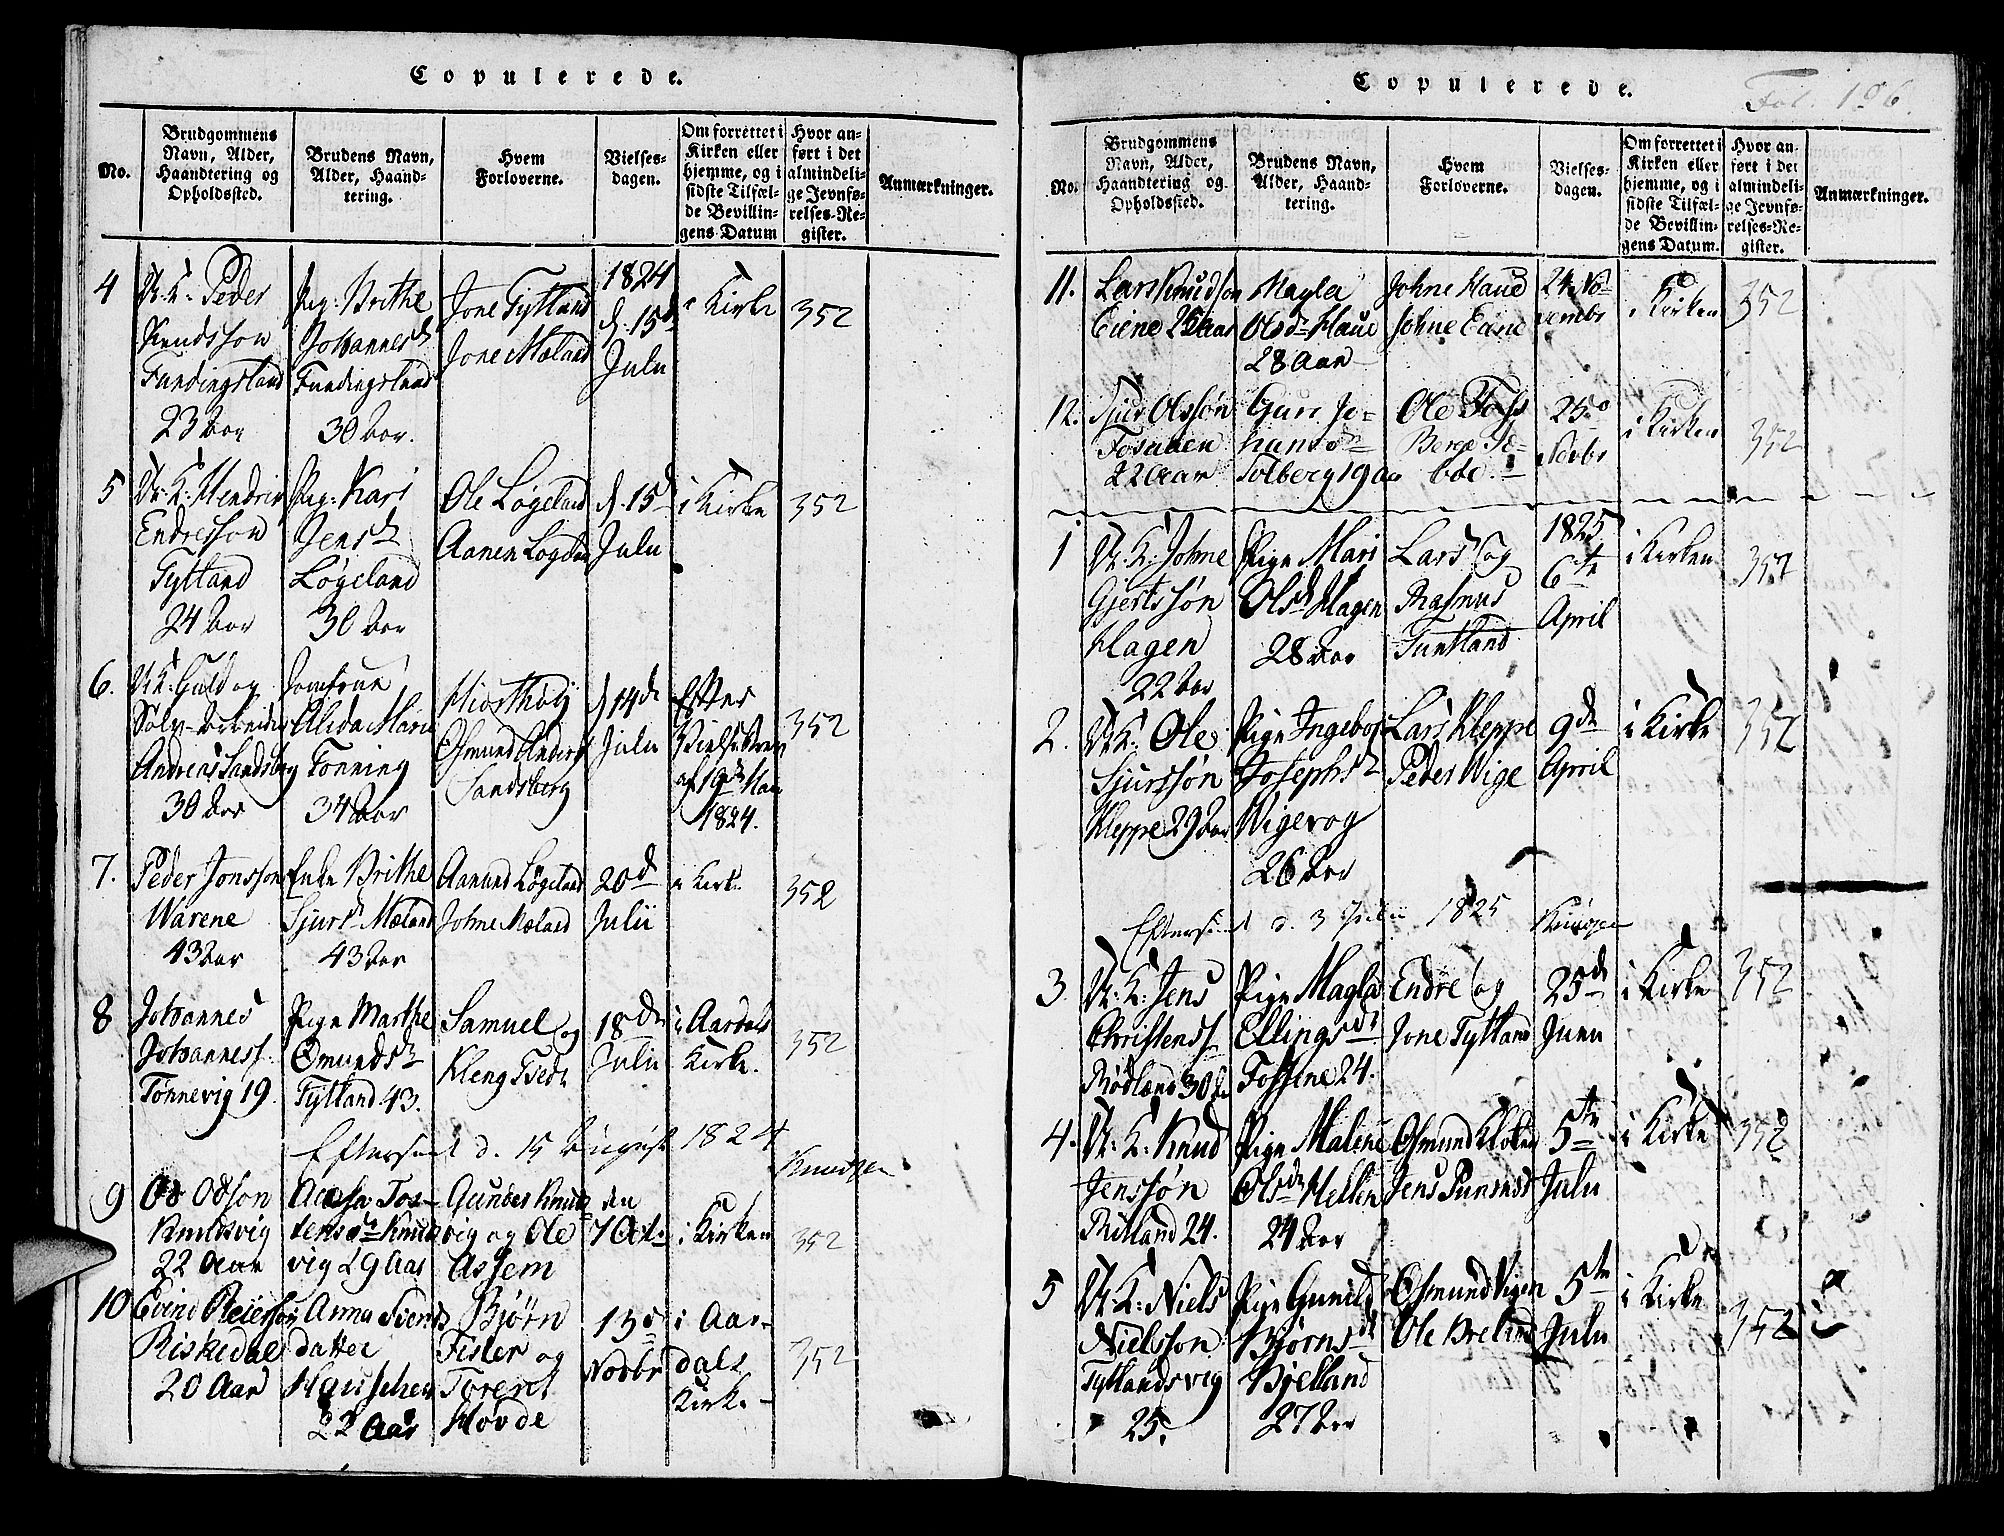 Copulerede.
No.
Brudgommens Navn, Alder, Haandtering og Opholdssted.
Brudens Navn, Alder, Haandtering.
Hvem Forloverne.
Vielsesdagen.
Om forrettet i Kirken eller hjemme, og i sidste Tilfælde Bevillingens Datum
Hvor anført i det almindelige Jevnførelses-Register.
Anmærkninger.
4
U. K. Peder
Knudsson
Fundingsland
23 Aar
Pig. Brithe
Johannesd.
Fundingsland
30 Aar.
Jone Tytland
Jone Mæland
1824
d. 15de
Julii
i Kirke
352
5
U. K. Hendrik
Endresson
Tytland
24 Aar
Pig. Kari
Jensd.
Løgeland
30 Aar
Ole Løgeland
Aanen
d. 15d
Julii
i Kirke
352
6.
U. K. Guld og
Sølv-Arbeider
Andreas Sandsberg
30 Aar
Jomfrue
Alida Marie
Tonning
34 Aar
Hiorthøy
Osmund
Sandsberg
d 14de
Julii
Efter
af 19de Mai
1824.
352
7.
Peder Jonsson
Warene
43 Aar
Enke Brithe
Sjursd. Mæland
43 Aar
Aamund Løgeland
Johne Mæland
20d
Julii
i Kirke
352
8
Johannes
Johanness.
Tønnevig 19.
Pige Marthe
Omundsd.
Tytland 43.
Samuel og
Kleng Tsedt
18de
Julii
i Aardals
Kirke.
352
Efterseet d. 15 August 1824
Knudzen
9
Od Odson
Knudsvig
22 Aar
Aasa Tos-
tensdr Knuds
vig 29 Aar
Gunder Knuds
vig og Ole
Assem
den
7 Oct.
i Kirken
352
10
Evind Reierson
Riskedal
20 Aar
Anna Svends
datter
22 Aar
Bjørn
Fister og
Toreret
Hovde
13d
Novbr
i Aar-
dals
Kirke
352
Copulerede.
Fol. 196.
No.
Brudgommens Navn, Alder, Haandtering og Opholdssted.
Brudens Navn, Alder, Haandtering.
Hvem Forloverne.
Vielsesdagen.
Om forrettet i Kirken eller hjemme, og i sidste Tilfælde Bevillingens Datum.
Hvor anført i det almindelige Jevnførelses-Register.
Anmærkninger.
11.
Lars Knudson
Eiene 25 Aar
Magla
Olsdr Haue
28 Aar
Johne Haue
Johne Eane
24 No-
vembr
i Kirken
352
12.
Sjur Olssøn
Fosaaen
22 Aar
Guri Jo-
hansdr
Solberg 19 aar
Ole Foss
25
Novbr
i Kirken
352
1
U. K. Johne
Gjertssøn
Hagen
22 Aar
Pige Mari
Olsd Hagen
28 Aar
Lars og
Rasmus
Tuntland
1825
6te
April
i Kirken
352
2.
U. K. Ole
Sjurssøn
Kleppe 29 Aar
Pige Ingeborg
Josephsd.
Wigevog
26 Aar
Lars Kleppe
Peder Wige
9de
April
i Kirke
352
Efterseet d. 3 Julii 1825
Knudzen
3.
U. K. Jens
Christens.
Rødland 30 Aar
Pige Magla
Ellingsd.
Fossene 24.
Endre og
Jone Tytland
25de
Junii
i Kirke
352
4.
U. K. Knud
Jenssøn
Ritland 24.
Pige Malene
Olsdr Hellen
24 Aar
Osmund
Jens
5te
Julii
i Kirke
352
5
U. K. Niels
Nielsson
Tytlandsvig
25.
Pige Gunild
Bjørnsd
Bjelland
27 Aar
Osmund Vigen
Ole
5te
Julii
i Kirke
352